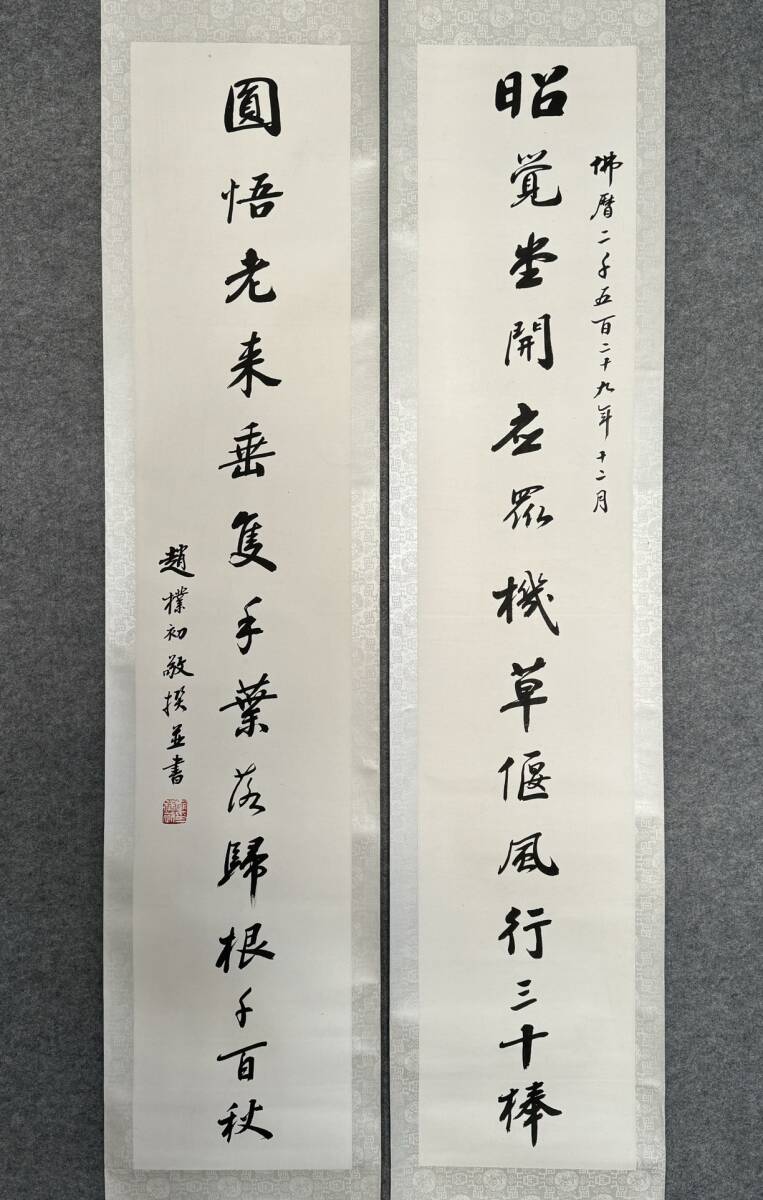 佛曆二千五百二十九年十二月
昭覚堂開应眾機草偃風行三十棒
圓悟老来垂隻手葉落歸根千百秋
趙樸初敬撰並書